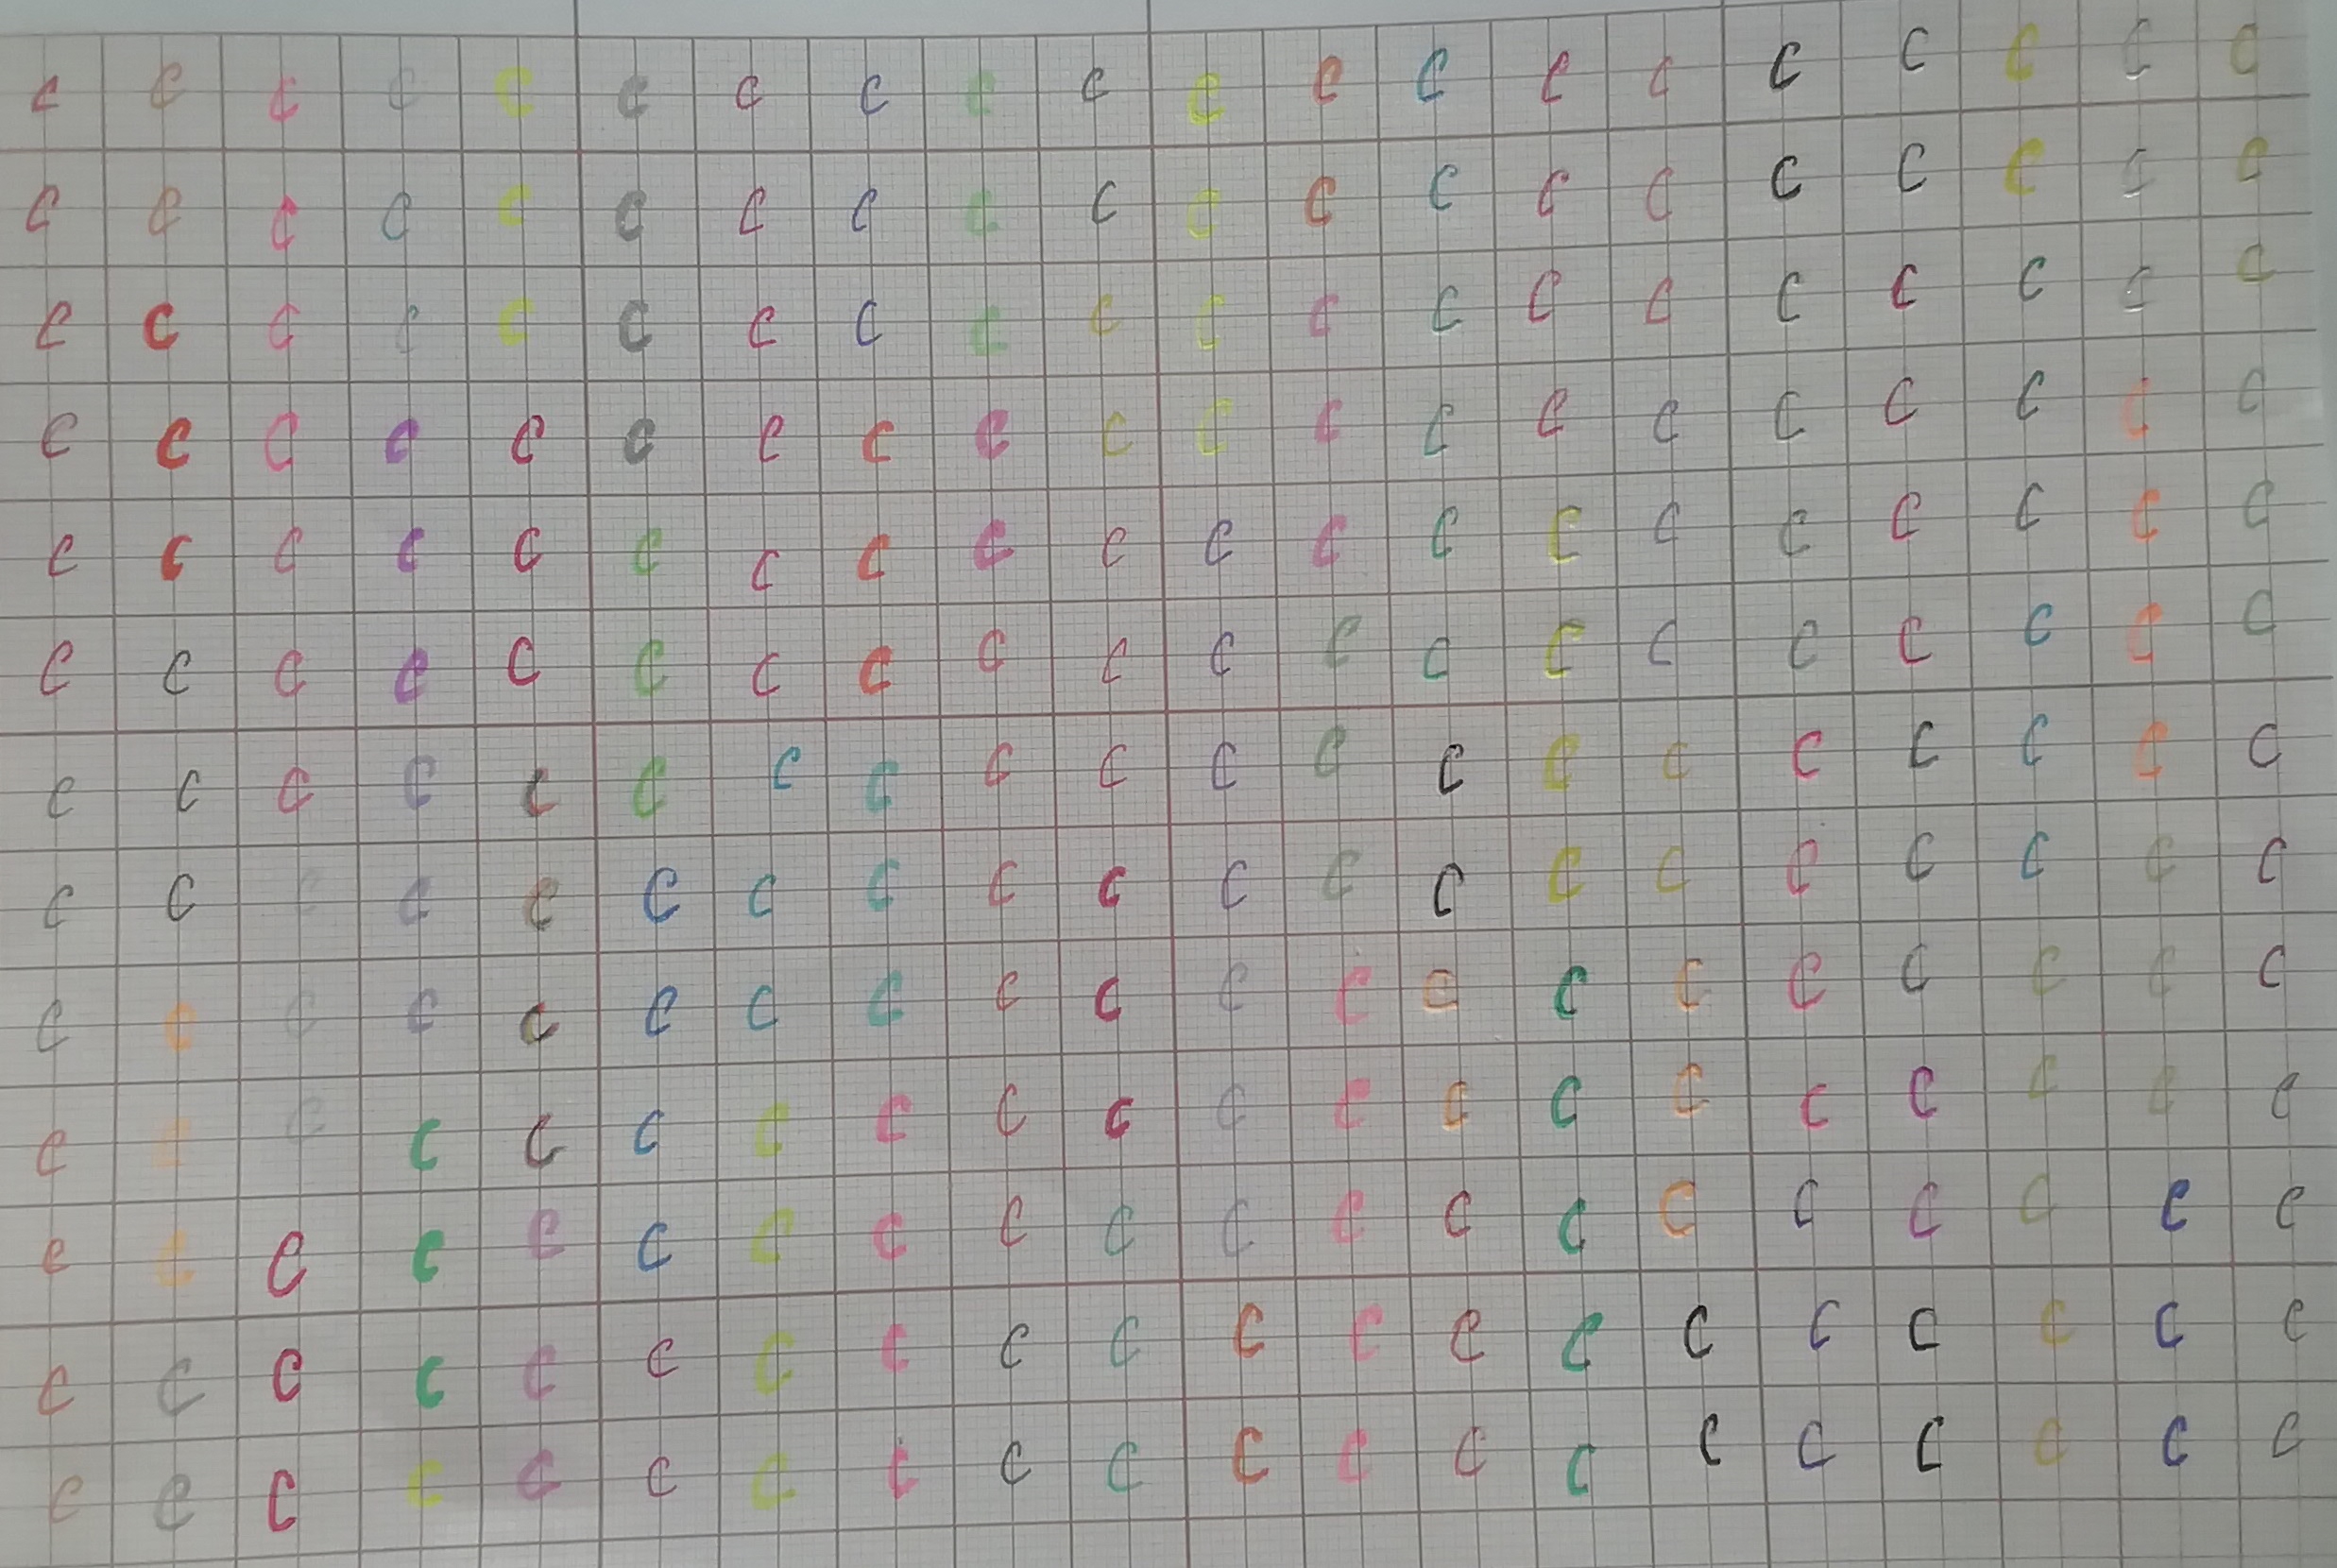 c c c c c c c c c c c c c c c c c c c c
c c c c c c c c c c c c c c c c c c c c
c c c c c c c c c c c c c c c c c c c c
c c c c c c c c c c c c c c c c c c c c
c c c c c c c c c c c c c c c c c c c c
c c c c c c c c c c c c c c c c c c c c
c c c c c c c c c c c c c c c c c c c c
c c c c c c c c c c c c c c c c c c c c
c c c c c c c c c c c c c c c c c c c c
c c c c c c c c c c c c c c c c c c c c
c c c c c c c c c c c c c c c c c c c c
c c c c c c c c c c c c c c c c c c c c
c c c c c c c c c c c c c c c c c c c c